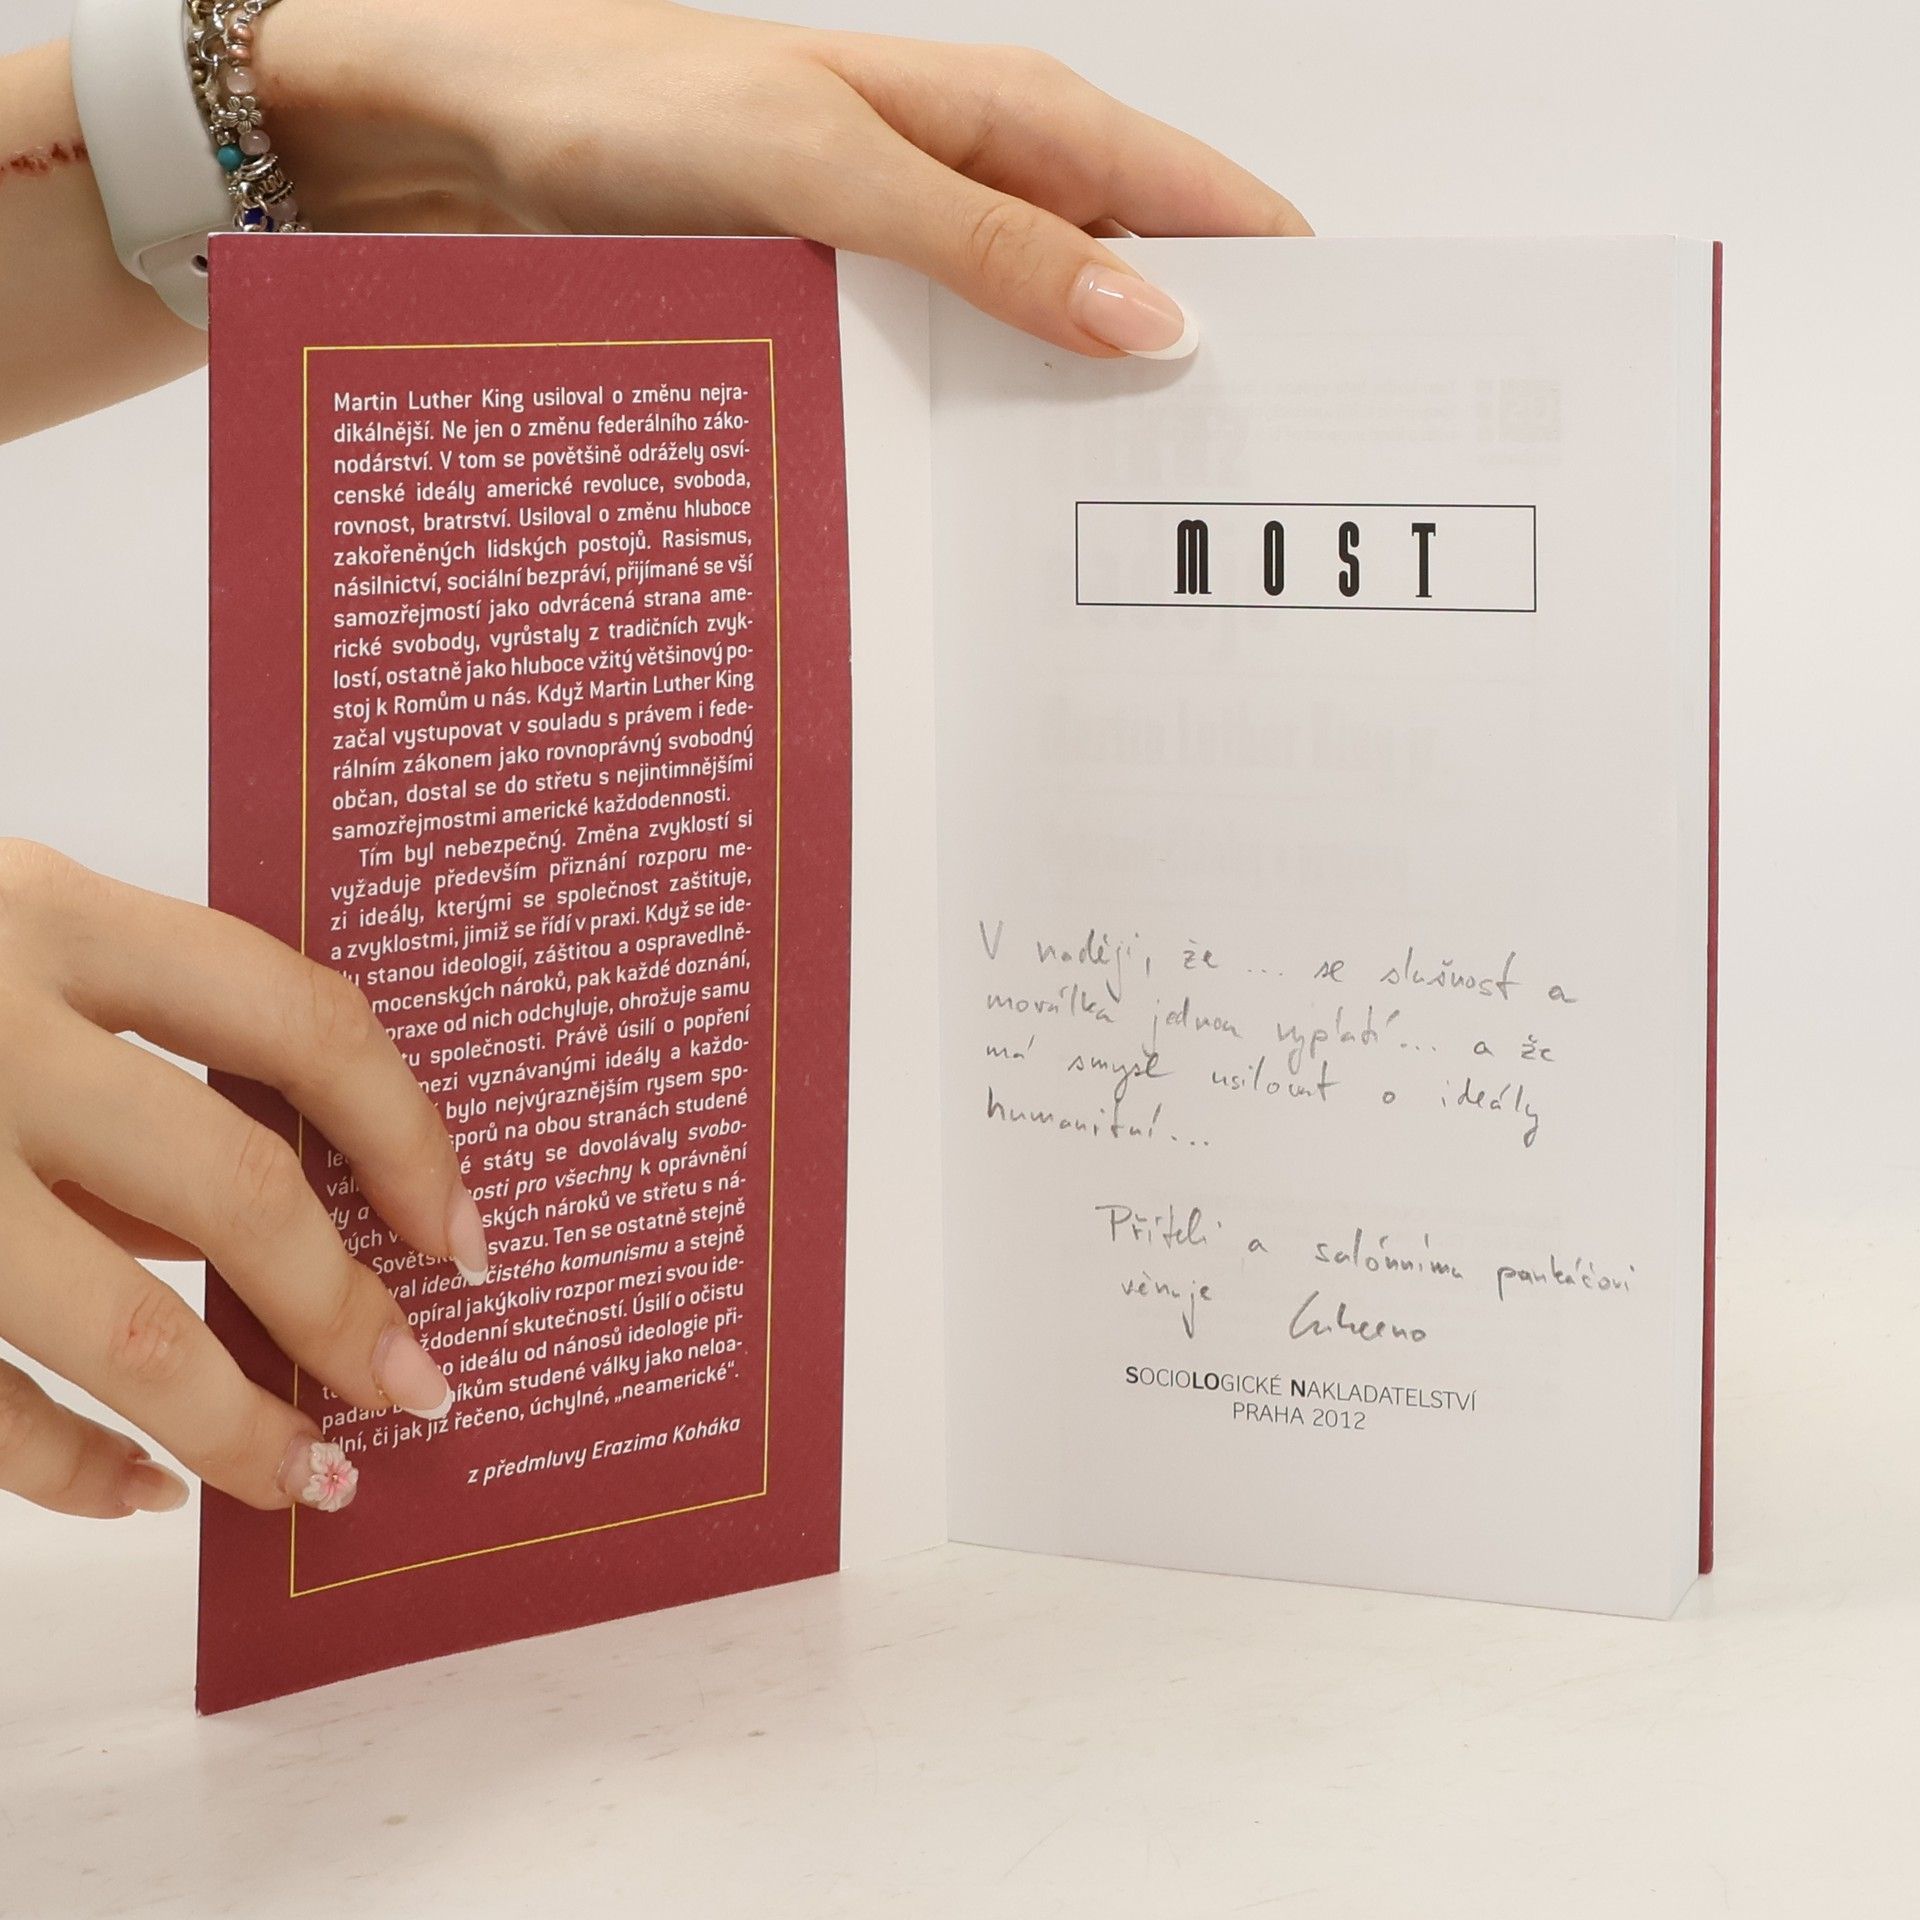 Martin Luther King usiloval o změnu nejra-
dikálnější. Ne jen o změnu federálního záko-
nodárství. V tom se povětšině odrážely osví-
censké ideály americké revoluce, svoboda,
rovnost, bratrství. Usiloval o změnu hluboce
zakořeněných lidských postojů. Rasismus,
násilnictví, sociální bezpráví, přijímané se vší
samozřejmostí jako odvrácená strana ame-
rické svobody, vyrůstaly z tradičních zvyk-
lostí, ostatně jako hluboce vžitý většinový po-
stoj k Romům u nás. Když Martin Luther King
začal vystupovat v souladu s právem i fede-
rálním zákonem jako rovnoprávný svobodný
občan, dostal se do střetu s nejintimnějšími
samozřejmostmi americké každodennosti.
Tím byl nebezpečný. Změna zvyklostí si
vyžaduje především přiznání rozporu me-
zi ideály, kterými se společnost zaštituje,
a zvyklostmi, jimiž se řídí v praxi. Když se ide-
stanou ideologií, záštitou a ospravedlně-
mocenských nároků, pak každé doznání,
praxe od nich odchyluje, ohrožuje samu
společnosti. Právě úsilí o popření
mezi vyznávanými ideály a každo-
bylo nejvýraznějším rysem spo-
sporů na obou stranách studené
státy se dovolávaly svobo-
pro všechny k oprávnění
nároků ve střetu s ná-
svazu. Ten se ostatně stejně
čistého komunismu a stejně
opíral jakýkoliv rozpor mezi svou ide-
skutečností. Úsilí o očistu
ideálu od nánosů ideologie při-
studené války jako neloa-
či jak již řečeno, úchylné, „neamerické“.
z předmluvy Erazima Koháka
MOST
V naději, že ... se slušnost a
morálka jednou vyplatí... a že
má smysl usilovat o ideály
humanitní...
Příteli a salónnímu pankáčovi
věnuje
SOCIOLOGICKÉ NAKLADATELSTVÍ
PRAHA 2012